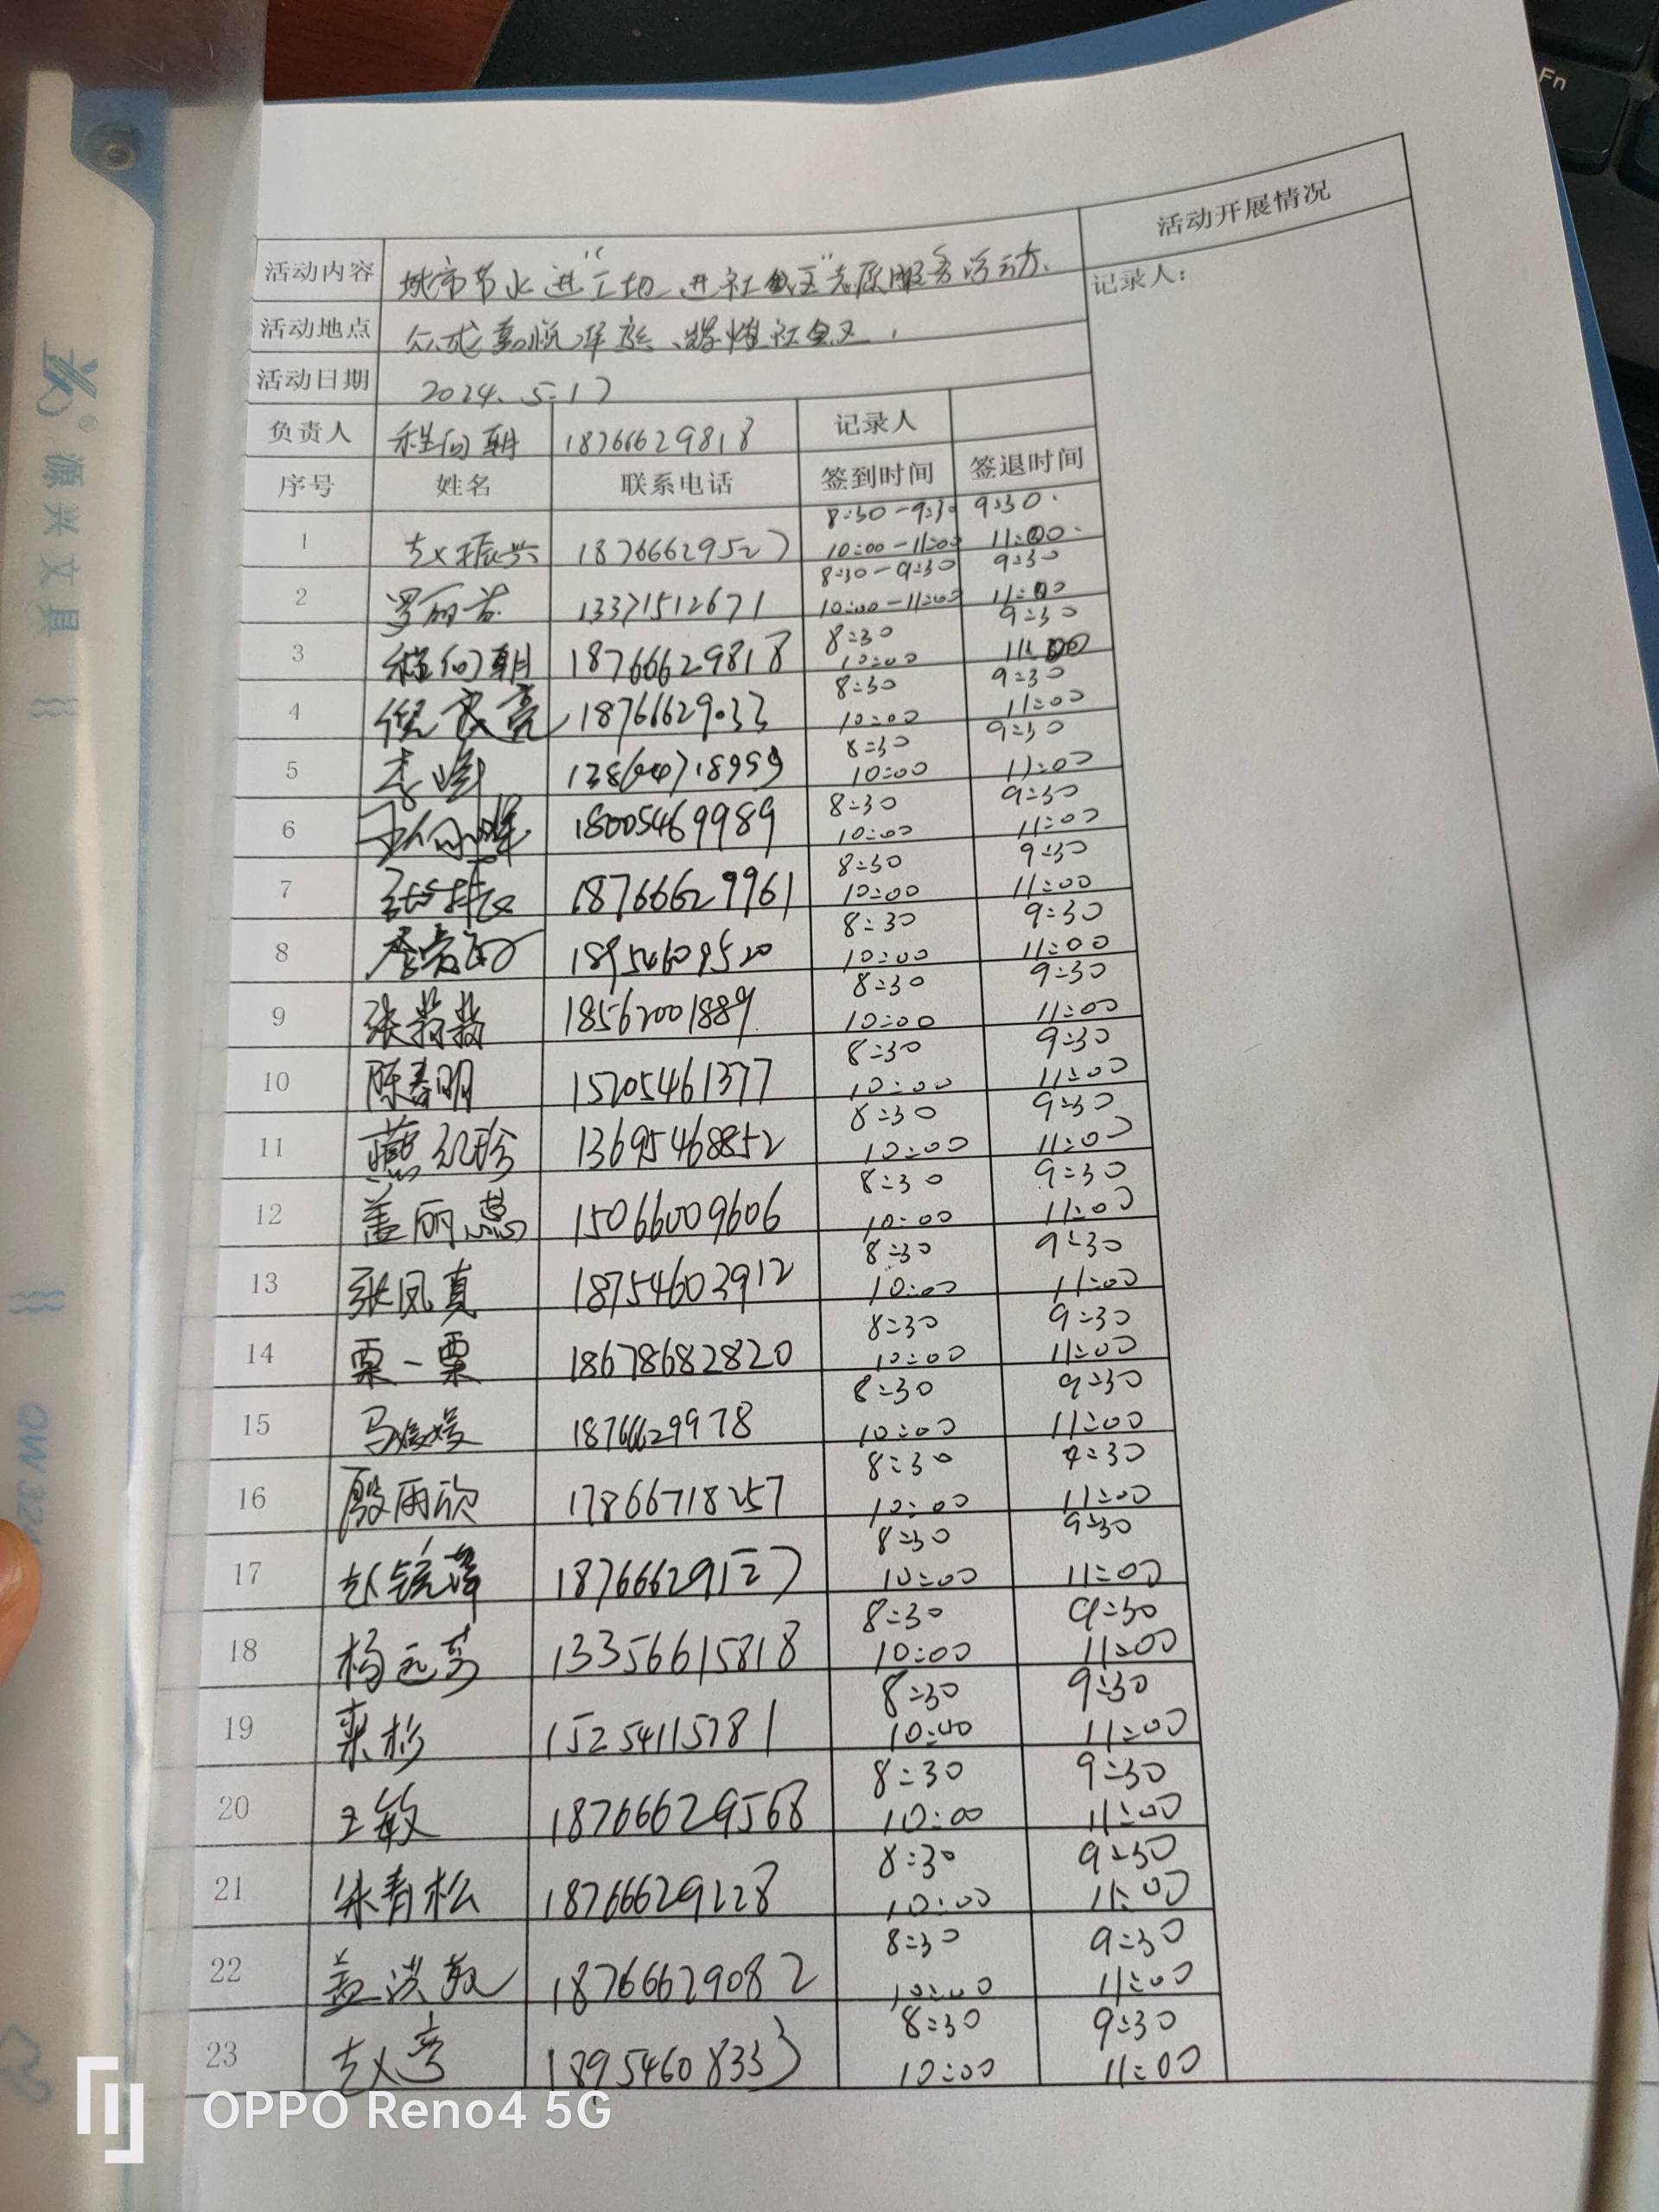 Fn
源兴文具
活动内容 城市节水进"工地、进社区"志愿服务活动. 活动开展情况
活动地点 记录人：
活动日期 2024.5.17
负责人 程向朝 18766629818 记录人
序号 姓名 联系电话 签到时间 签退时间
8:30-9:30 9:30
1 赵振兴 18766629527 10:00-11:00 11:00
8:30-9:30 9:30
2 13371512671 10:00-11:00 11:00
8:30 9:30
3 程向朝 18766629818 10:00 11:00
8:30 9:30
4 倪良亮 18766629033 10:00 11:00
8:30 9:30
5 李峰 10:00 11:00
8:30 9:30
6 18005469989 10:00 11:00
8:30 9:30
7 18766629961 10:00 11:00
8:30 9:30
8 18954609520 10:00 11:00
8:30 9:30
9 18562001889 10:00 11:00
8:30 9:30
10 陈春明 15205461377 10:00 11:00
8:30 9:30
11 13695468852 10:00 11:00
8:30 9:30
12 盖丽蕊 15066009606 10:00 11:00
8:30 9:30
13 张凤真 18754603912 10:00 11:00
8:30 9:30
14 栗一栗 18678682820 10:00 11:00
8:30 9:30
15 马媛媛 18766629978 10:00 11:00
8:30 9:30
16 殷雨欣 17866718257 10:00 11:00
8:30 9:30
17 18766629127 10:00 11:00
8:30 9:30
18 杨元芳 13356615818 10:00 11:00
8:30 9:30
19 栾杉 15254115781 10:00 11:00
8:30 9:30
20 王敏 18766629568 10:00 11:00
8:30 9:30
21 朱青松 18766629228 10:00 11:00
8:30 9:30
22 盖洪敏 18766629082 10:00 11:00
8:30 9:30
23 赵彦 18954608333 10:00 11:00
OPPO Reno4 5G